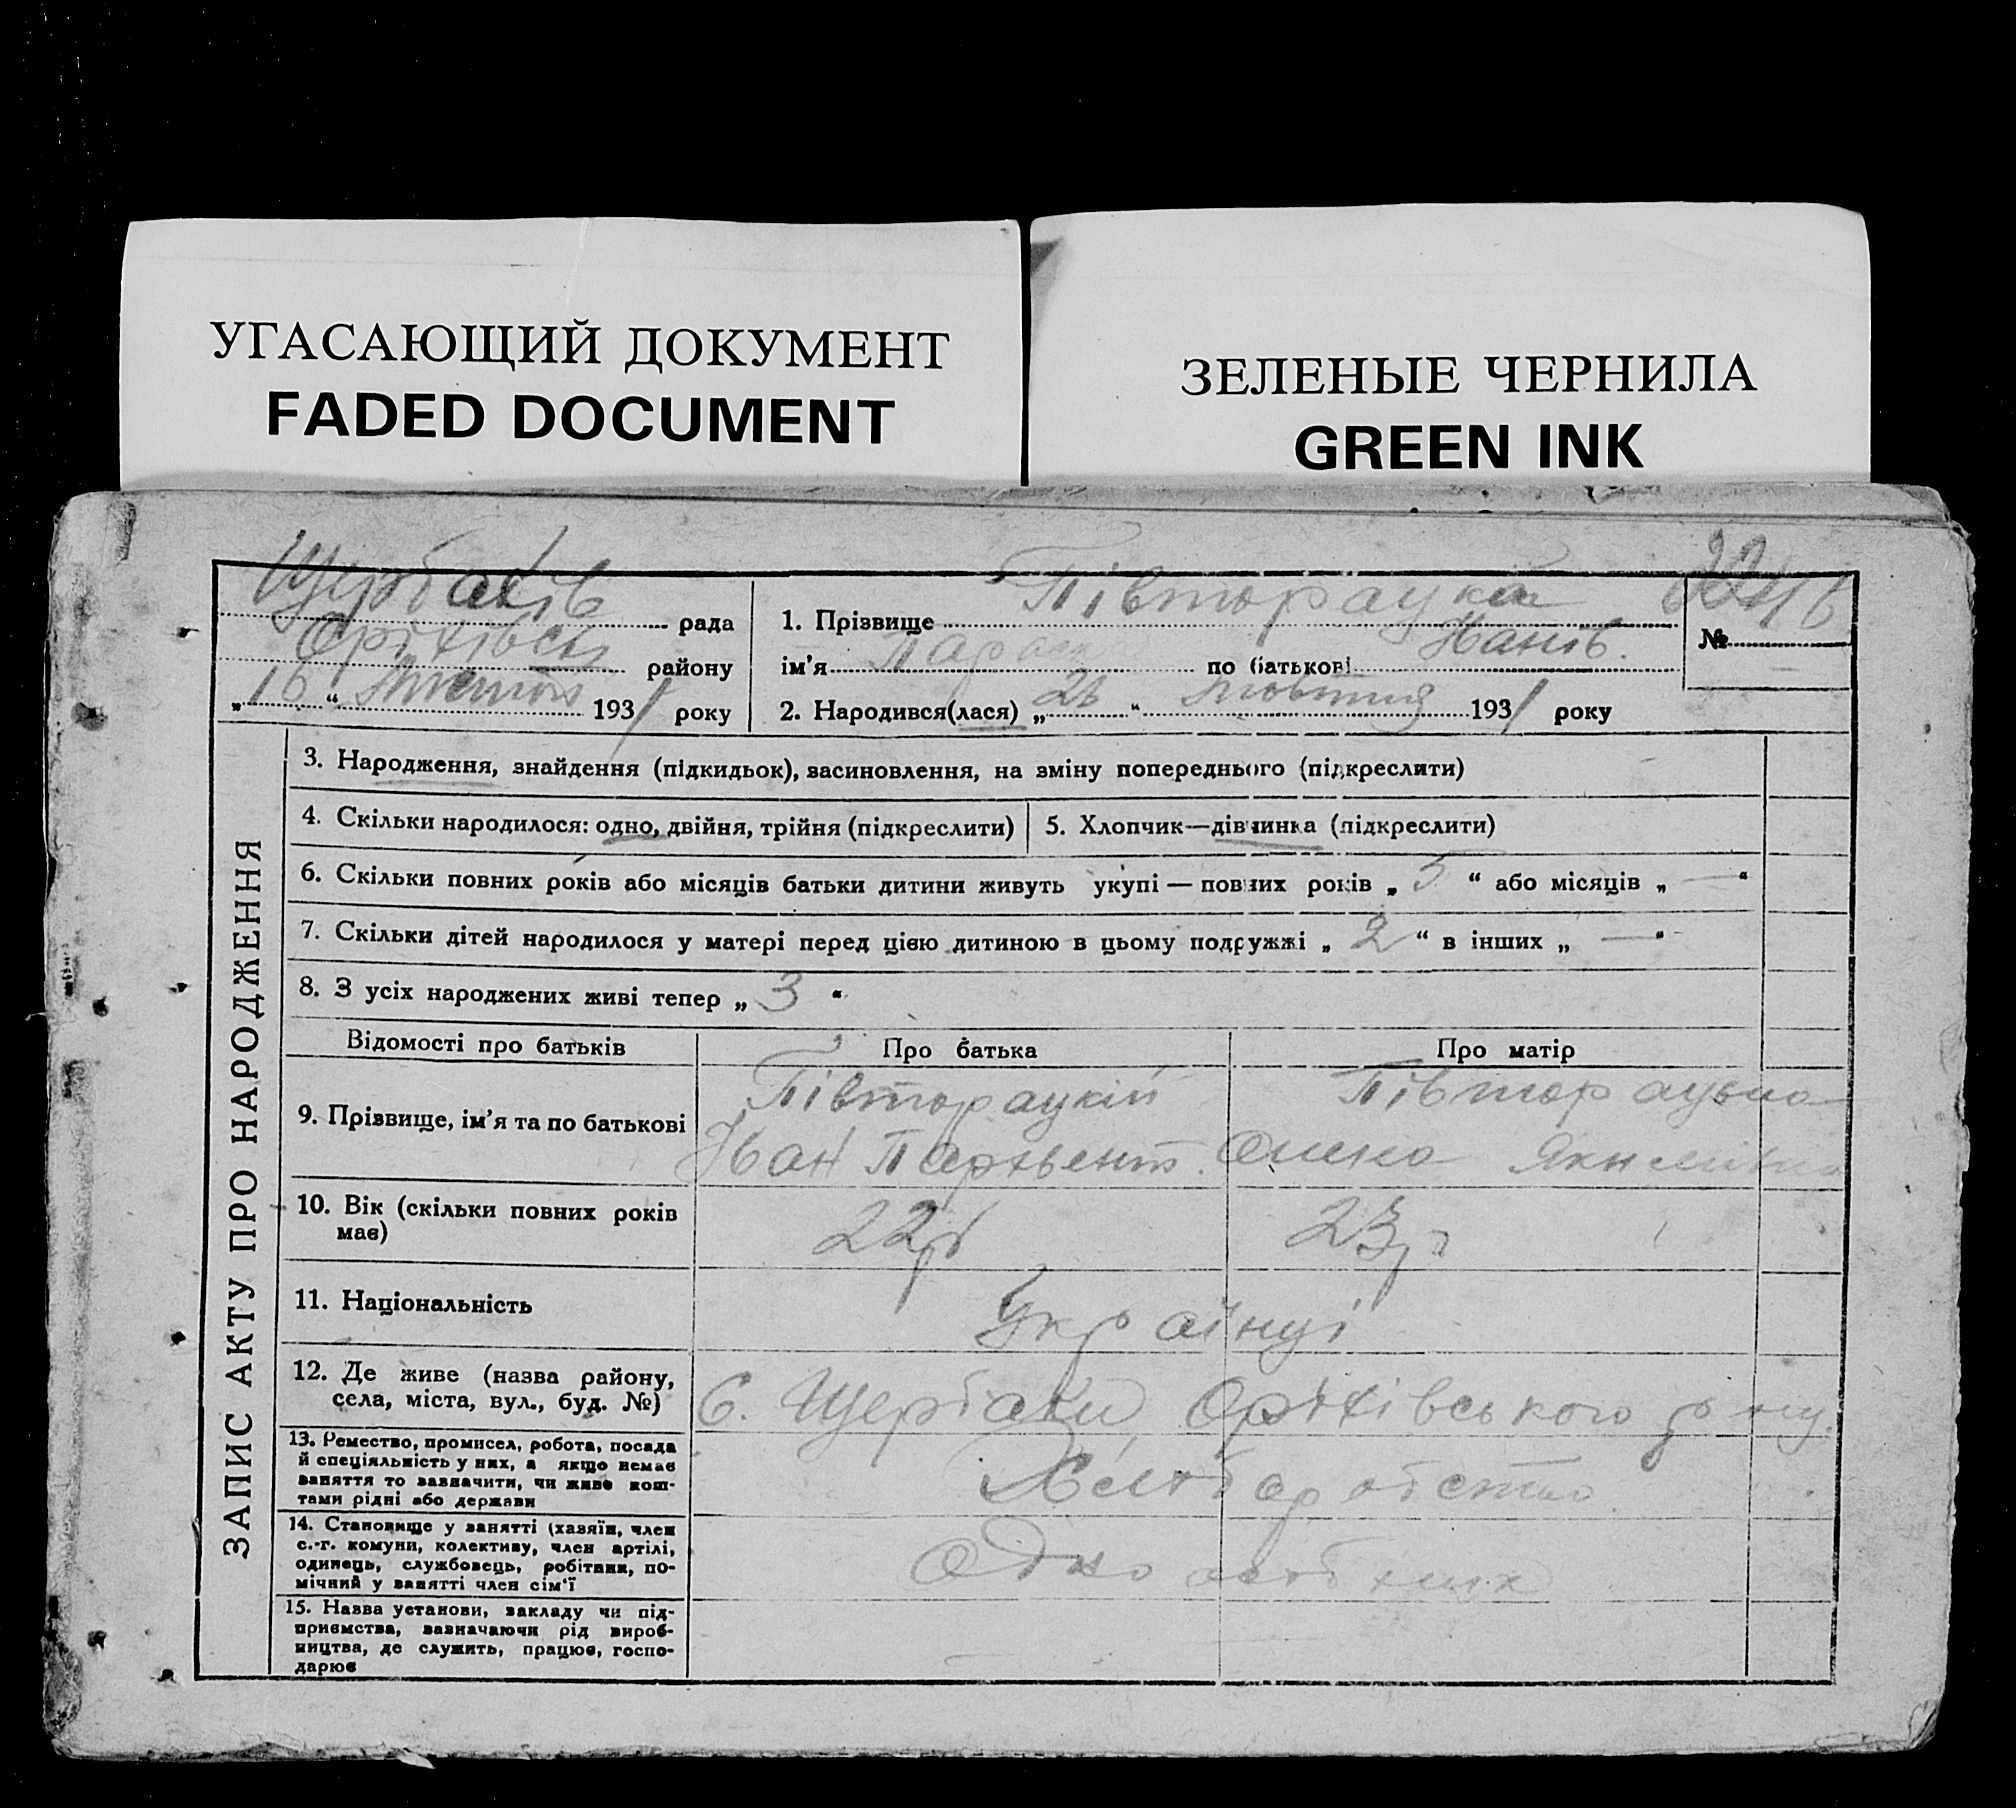 УГАСАЮЩИЙ ДОКУМЕНТ
FADED DOCUMENT
ЗЕЛЕНЫЕ ЧЕРНИЛА
GREEN INK
ЗАПИС АКТУ ПРО НАРОДЖЕННЯ
Щербаків рада
Оріхівськ району
„16“ 1931 року
1. Прізвище Півторацкий
ім'я Параска по батькові Іванів.
№
2. Народився(лася) „26“ жовтня 1931 року
3. Народження, знайдення (підкидьок), засиновлення, на зміну попереднього (підкреслити)
4. Скільки народилося: одно, двійня, трійня (підкреслити)
5. Хлопчик—дівчинка (підкреслити)
6. Скільки повних років або місяців батьки дитини живуть укупі — повних років „5“ або місяців „—“
7. Скільки дітей народилося у матері перед цією дитиною в цьому подружжі „2“ в інших „—“
8. З усіх народжених живі тепер „3“
Відомості про батьків Про батька Про матір
9. Прізвище, ім'я та по батькові
Півторацкій
Іван Пархвент.
Півторацька
Олена
10. Вік (скільки повних років має)
22 р
23 р
11. Національність
Українці
12. Де живе (назва району, села, міста, вул., буд. №)
С. Щербаки Оріхівського р-ну.
13. Ремество, промисел, робота, посада
й спеціяльність у них, а якщо немає
заняття то зазначити, чи живе кош-
тами рідні або держави
Хліборобство
14. Становище у занятті (хазяїн, член
с.-г. комуни, колективу, член артілі,
одинець, службовець, робітник, по-
мічний у занятті член сім'ї
Одноосібник
15. Назва установи, закладу чи під-
приємства, зазначаючи рід вироб-
ництва, де служить, працює, госпо-
дарює